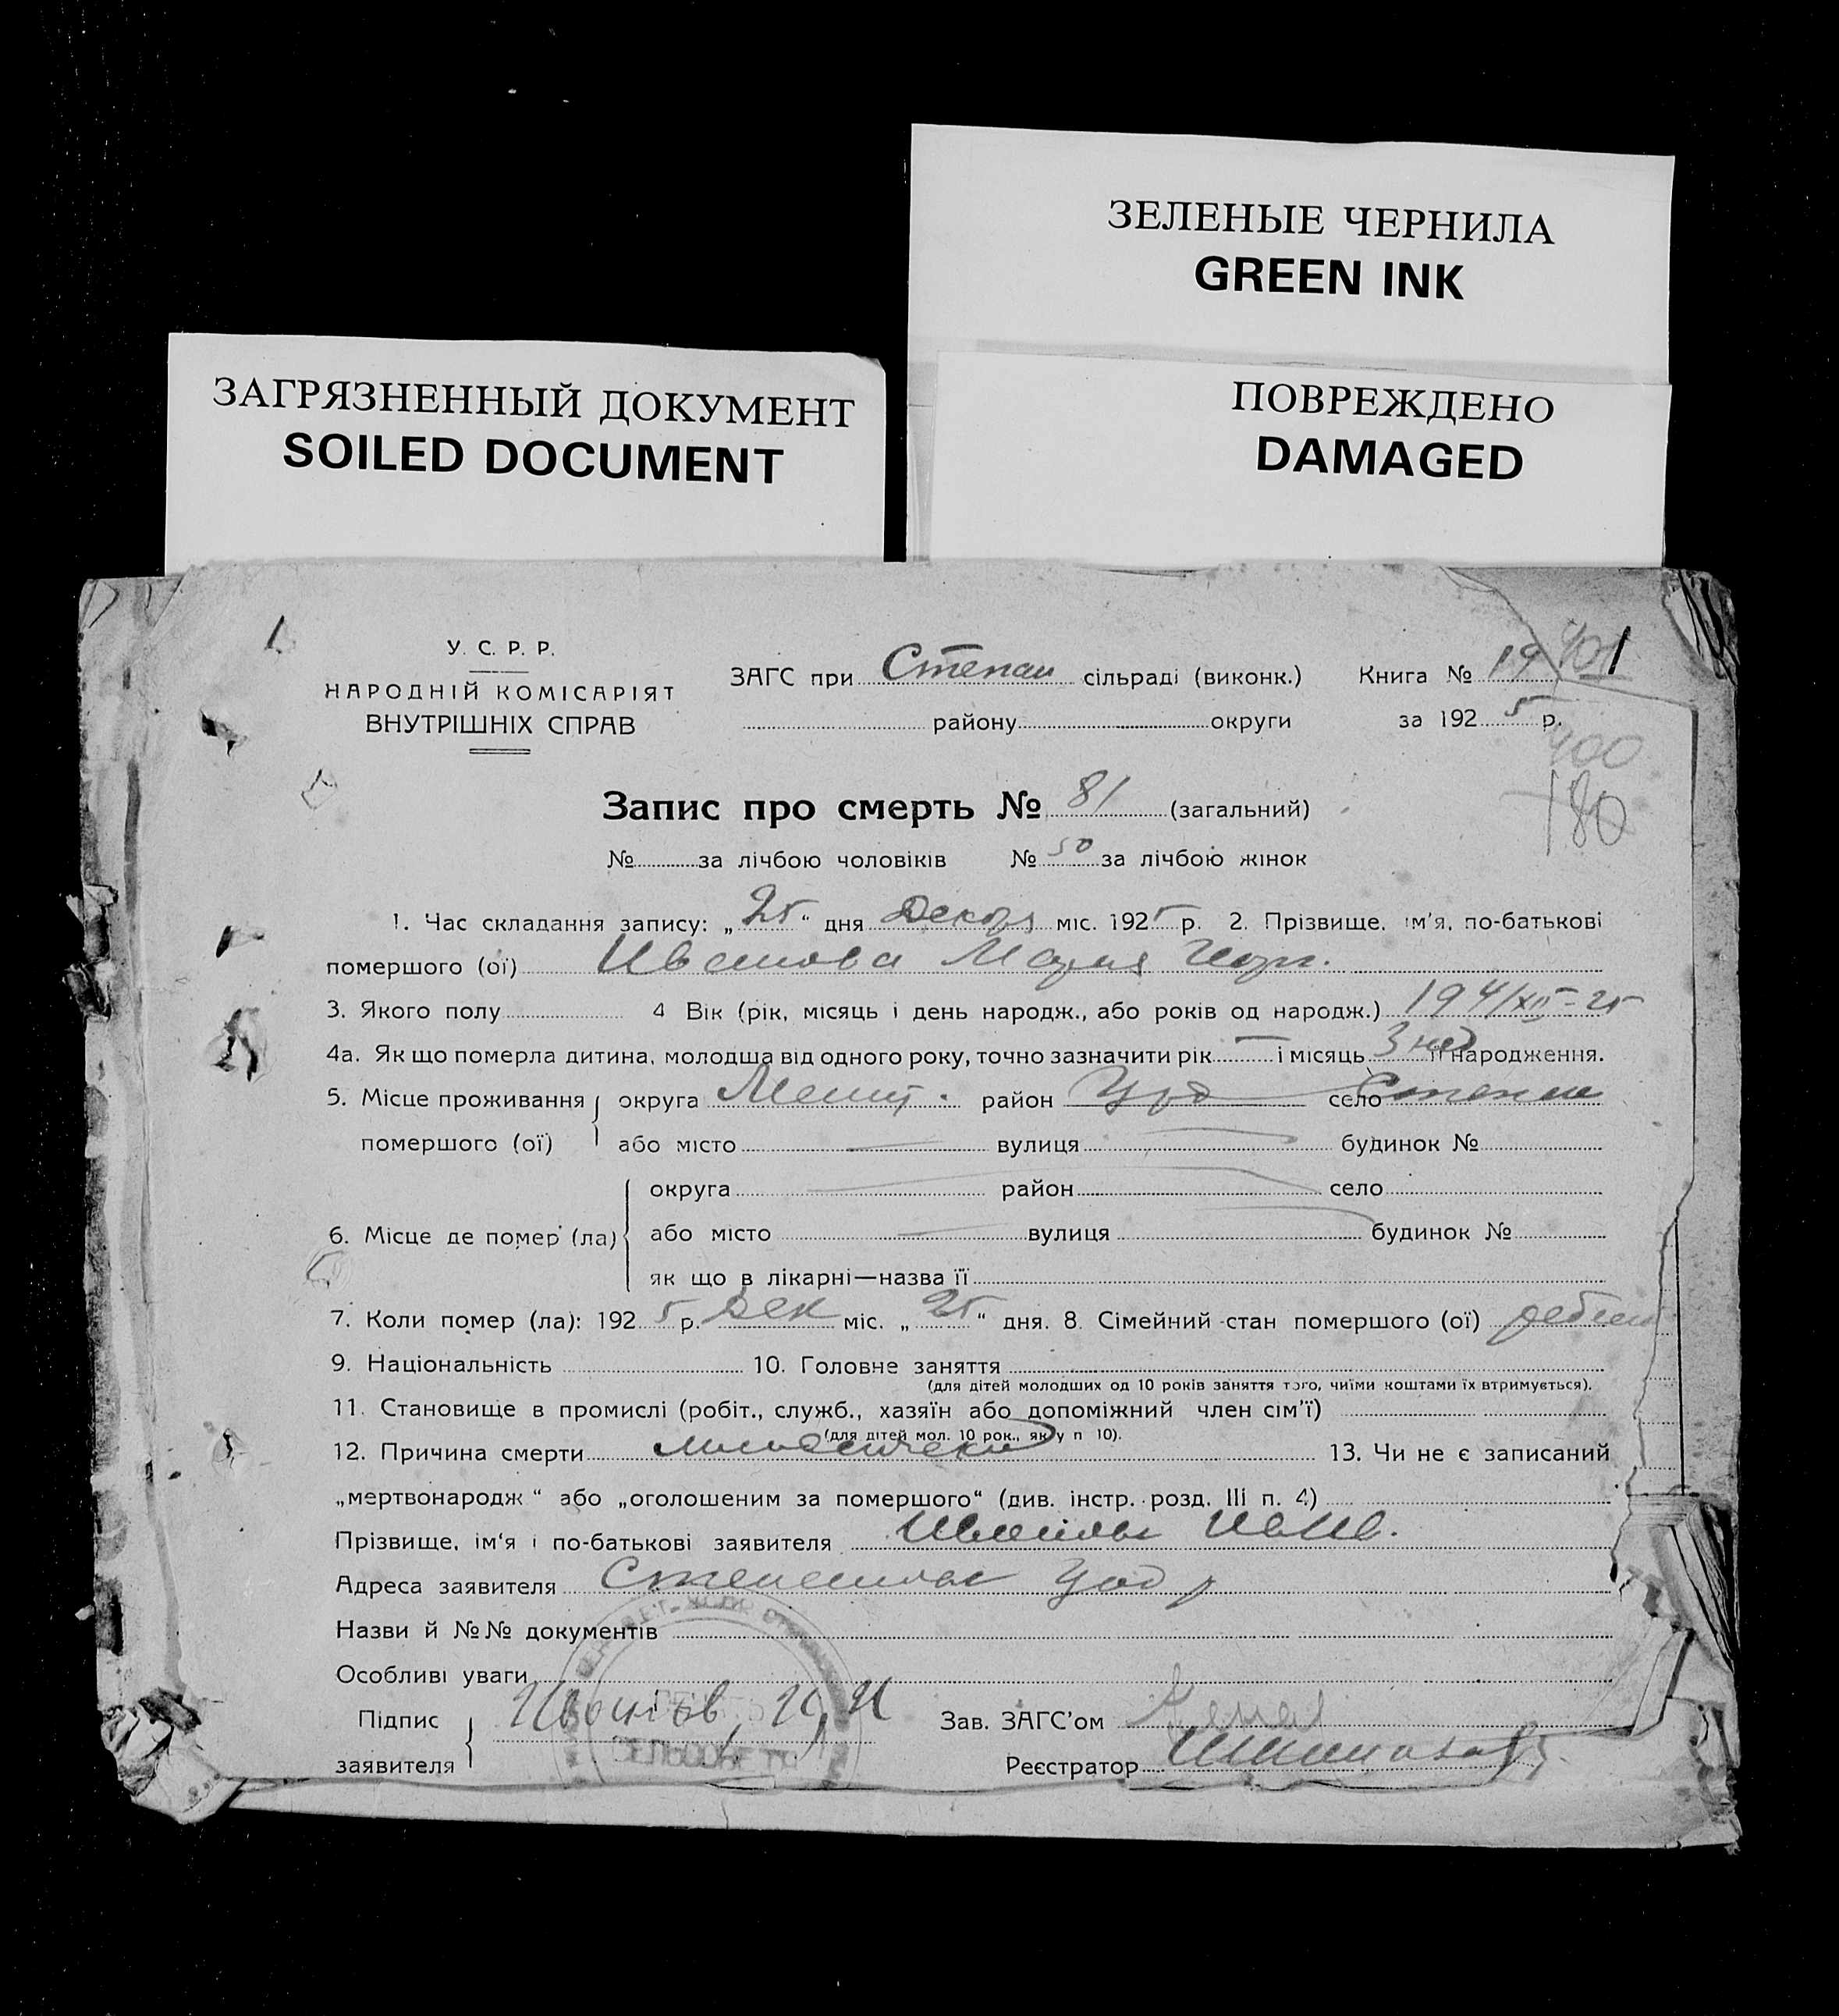 ЗЕЛЕНЫЕ ЧЕРНИЛА
GREEN INK
ЗАГРЯЗНЕННЫЙ ДОКУМЕНТ
SOILED DOCUMENT
ПОВРЕЖДЕНО
DAMAGED
У. С. Р. Р.
НАРОДНІЙ КОМІСАРІЯТ
ВНУТРІШНІХ СПРАВ
ЗАГС при Степан сільраді (виконк.) Книга № 19
району округи за 1925 р.
400
180
Запис про смерть № 81 (загальний)
№ за лічбою чоловіків № 50 за лічбою жінок
1. Час складання запису: „25“ дня міс. 1925 р. 2. Прізвище, ім'я, по-батькові
помершого (ої) Иванова Мария
3. Якого полу 4 Вік (рік, місяць і день народж., або років од народж.)
4а. Як що померла дитина, молодша від одного року, точно зазначити рік — і місяць 3 нед її народження.
5. Місце проживання округа район село
помершого (ої) або місто вулиця будинок №
округа район село
6. Місце де помер (ла) або місто вулиця будинок №
як що в лікарні—назва її
7. Коли помер (ла): 1925 р. Дек міс. „25“ дня. 8. Сімейний стан помершого (ої)
9. Національність 10. Головне заняття
(для дітей молодших од 10 років заняття того, чиїми коштами їх втримується).
11. Становище в промислі (робіт., служб., хазяїн або допоміжний член сім'ї)
(для дітей мол. 10 рок., як у п 10).
12. Причина смерти 13. Чи не є записаний
„мертвонародж“ або „оголошеним за помершого“ (див. інстр. розд. III п. 4)
Прізвище, ім'я і по-батькові заявителя
Адреса заявителя
Назви й №№ документів
Особливі уваги
Підпис Зав. ЗАГС'ом
заявителя Реєстратор